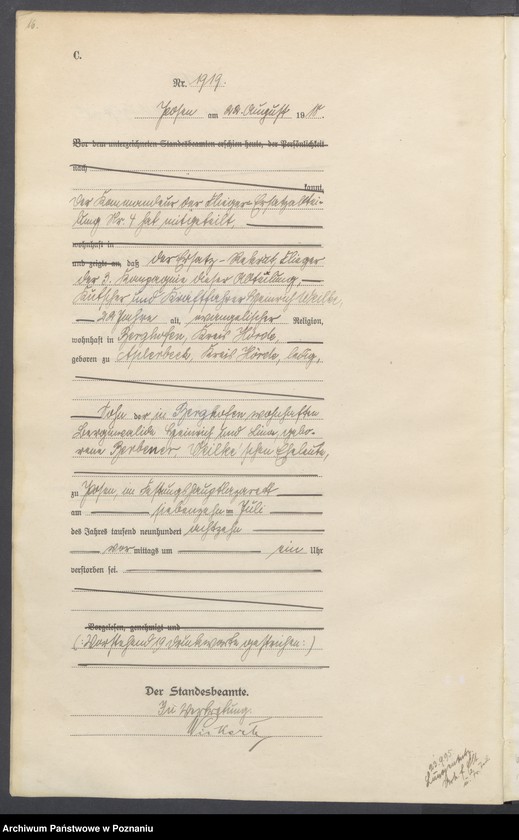 16.
C.
Nr. 1919.
Posen am 22. August 1918.
Vor dem unterzeichneten Standesbeamten erschien heute, der Persönlichkeit
nach
kannt,
Der Kommandeur der Flieger-Ersatzabtei-
lung Nr. 4 hat mitgeteilt,
wohnhaft in
und zeigte an, daß der Ersatz-Rekrut, Flieger
der 3. Kompagnie dieser Abteilung,
Kutscher und Kraftfahrer Heinrich Weilke,
Jahre alt, evangelischer Religion,
wohnhaft in Berghofen, Kreis Hörde,
geboren zu Aplerbeck, Kreis Hörde, ledig,
Sohn der in Berghofen wohnhaften
Berginvalide Heinrich und Lina, gebo-
rene Weilke'schen Eheleute,
zu Posen, im Festungshauptlazarett
am siebenzehn ten Juli
des Jahres tausend neunhundert achtzehn
vor mittags um ein Uhr
verstorben sei.
Vorgelesen, genehmigt und
(: Vorstehend 19 Druckworte gestrichen :)
Der Standesbeamte.
In Vertretung.
Archiwum Państwowe w Poznaniu